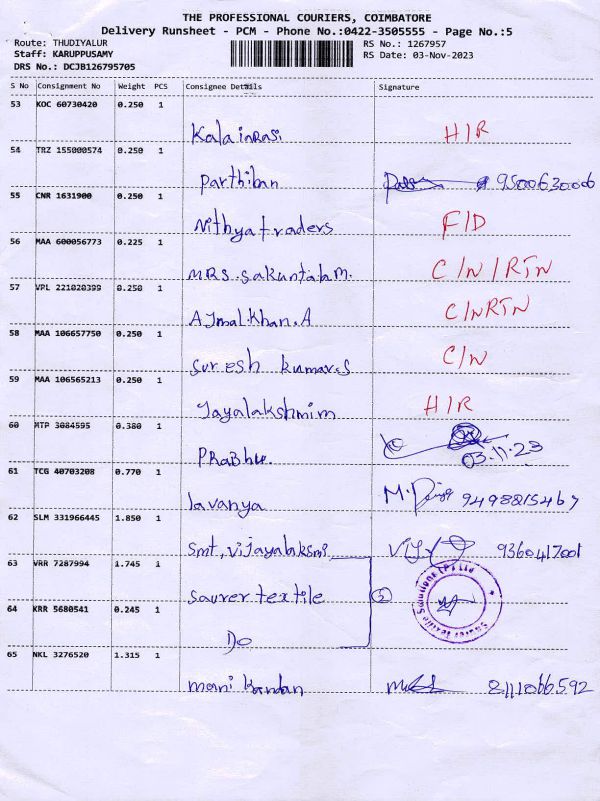 THE PROFESSIONAL COURIERS, COIMBATORE
Delivery Runsheet - PCM - Phone No.:0422-3505555 - Page No.:5
Route: THUDIYALUR
RS No.: 1267957
Staff: KARUPPUSAMY
RS Date: 03-Nov-2023
DRS No.: DCJB126795705
S No Consignment No Weight PCS Consignee Details Signature
53 KOC 60730420 0.250 1
Kalainrasi H/R
54 TRZ 155000574 0.250 1
Parthiban 9500630006
55 CNR 1631900 0.250 1
Nithya traders F/D
56 MAA 600056773 0.225 1
MRS. Sakuntala m. C/N/RTN
57 VPL 221020399 0.250 1
AJmal.Khan.A C/NRTN
58 MAA 106657750 0.250 1
Suresh kumar.S C/N
59 MAA 106565213 0.250 1
Jayalakshmi m H/R
60 MTP 3084595 0.380 1
PRabhu. 03.11.23
61 TCG 40703208 0.770 1
lavanya M. 9498815467
62 SLM 331966445 1.850 1
Smt, Vijayalaksmi 9360417001
63 VRR 7287994 1.745 1
Saurer textile 2
Saurer Textile Solutions (P) Ltd
64 KRR 5680541 0.245 1
Do
65 NKL 3276520 1.315 1
mani kandan 8111066592